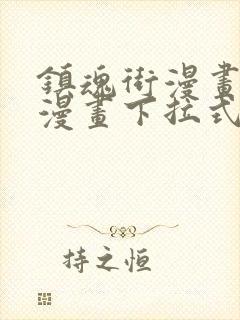 鎮魂街漫畫
漫畫下拉式
持之恒